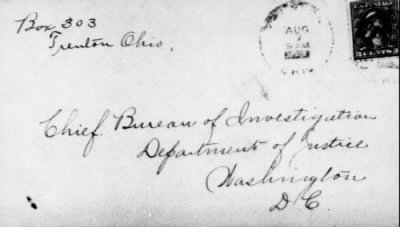 Box 303
Trenton Ohio.
AUG
7
OHIO
3 CENTS 3
Chief Bureau of Investigation
Department of Justice
Washington
D C.